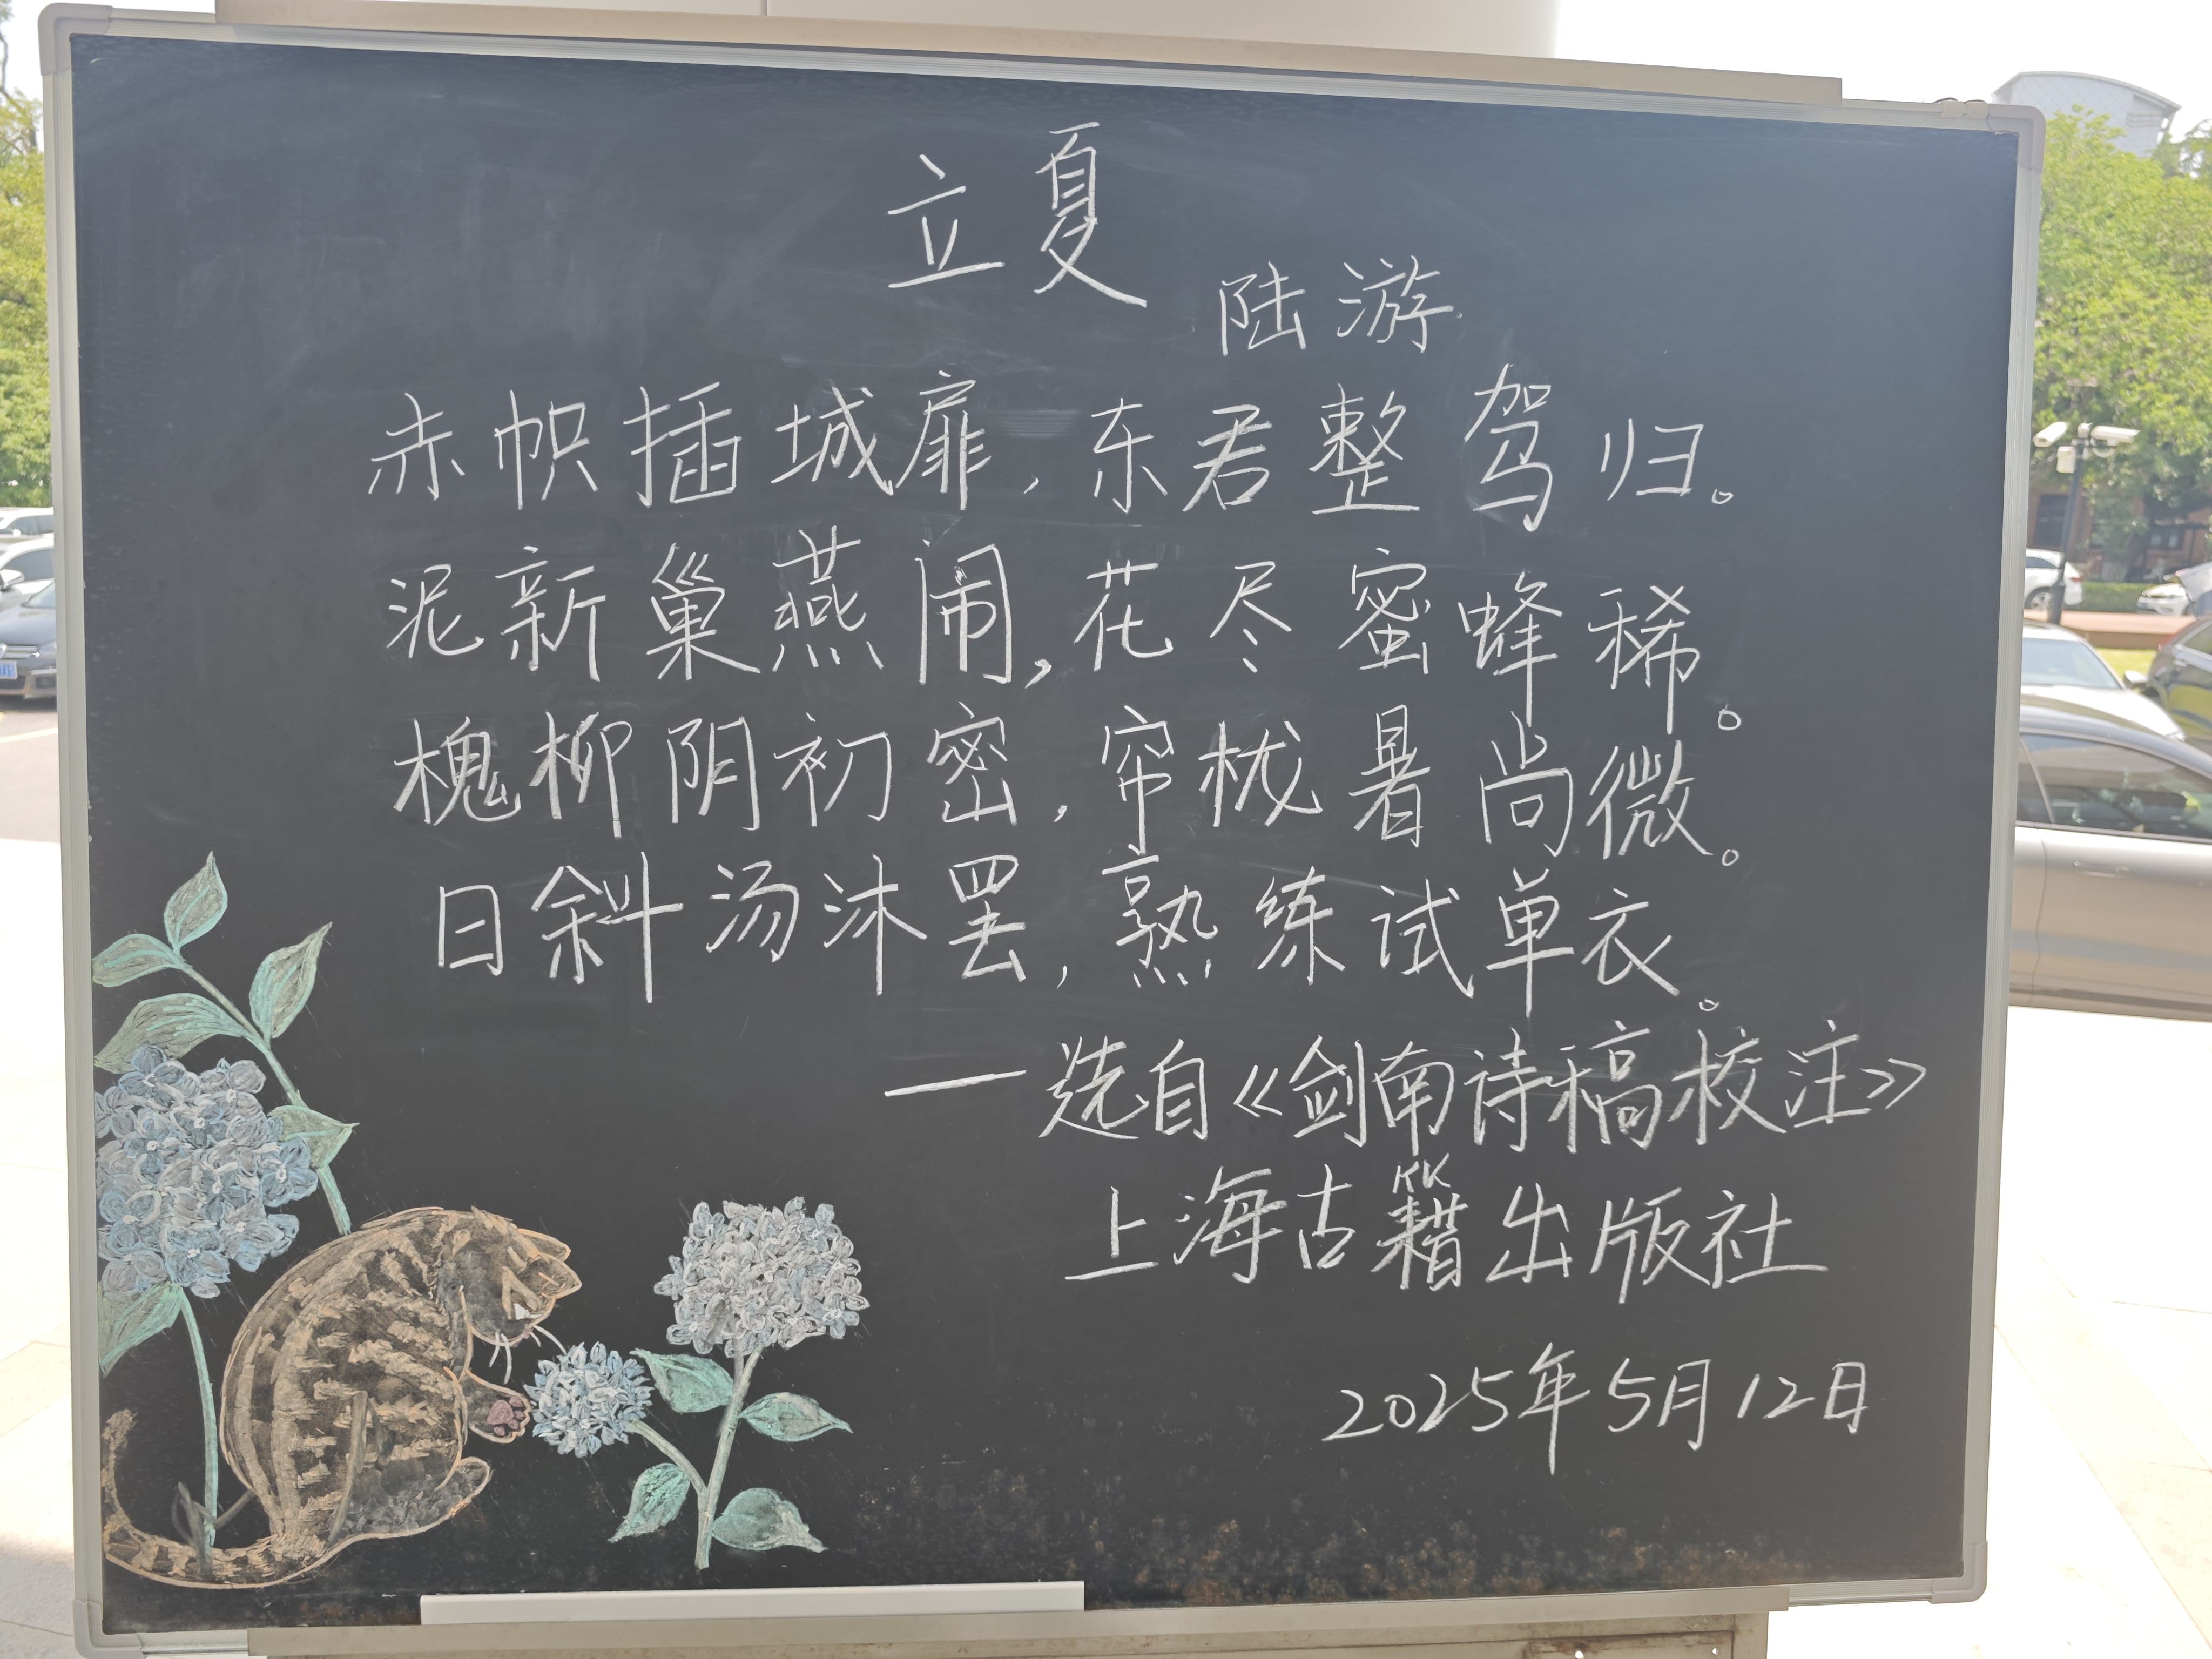 立夏
陆游
赤帜插城扉，东君整驾归。
泥新巢燕闹，花尽蜜蜂稀。
槐柳阴初密，帘栊暑尚微。
日斜汤沐罢，熟练试单衣。
—选自《剑南诗稿校注》
上海古籍出版社
2025年5月12日